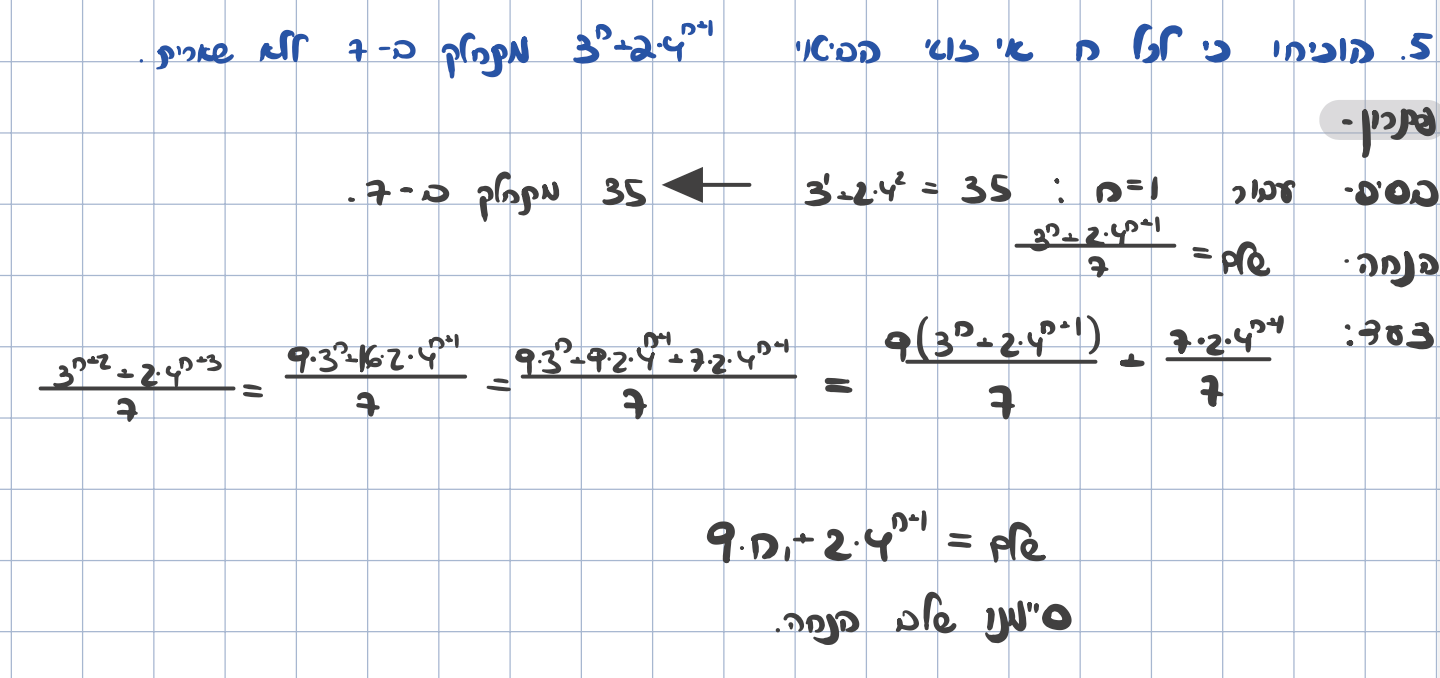 5. הוכיחו כי לכל n אי זוגי הביטוי 3^n+2·4^{n+1} מתחלק ב-7 ללא שארית.
פתרון-
בסיס- עבור n=1 : 3^1+2·4^2 = 35 ← 35 מתחלק ב-7.
הנחה· \frac{3^n+2·4^{n+1}}{7} = שלם
צעד: \frac{3^{n+2}+2·4^{n+3}}{7} = \frac{9·3^n+16·2·4^{n+1}}{7} = \frac{9·3^n+9·2·4^{n+1}+7·2·4^{n+1}}{7} = \frac{9(3^n+2·4^{n+1})}{7} + \frac{7·2·4^{n+1}}{7}
9·n_1+2·4^{n+1} = שלם
שלב הנחה.